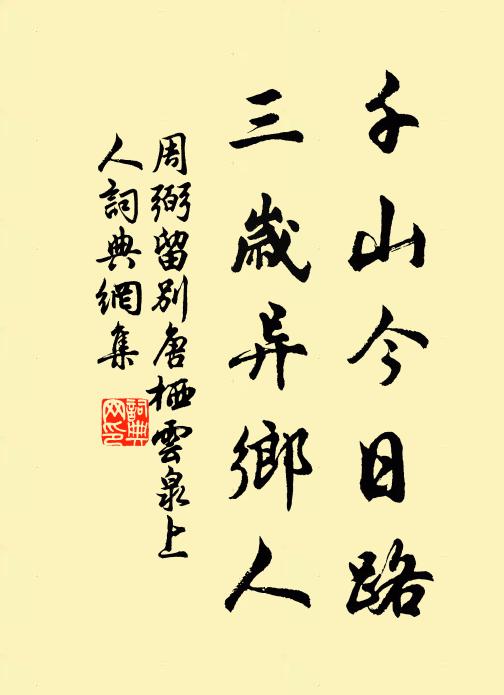 千山今日路
三歲异鄉人
周弼留别唐栖雲泉上
人詞典網集
詞典網印